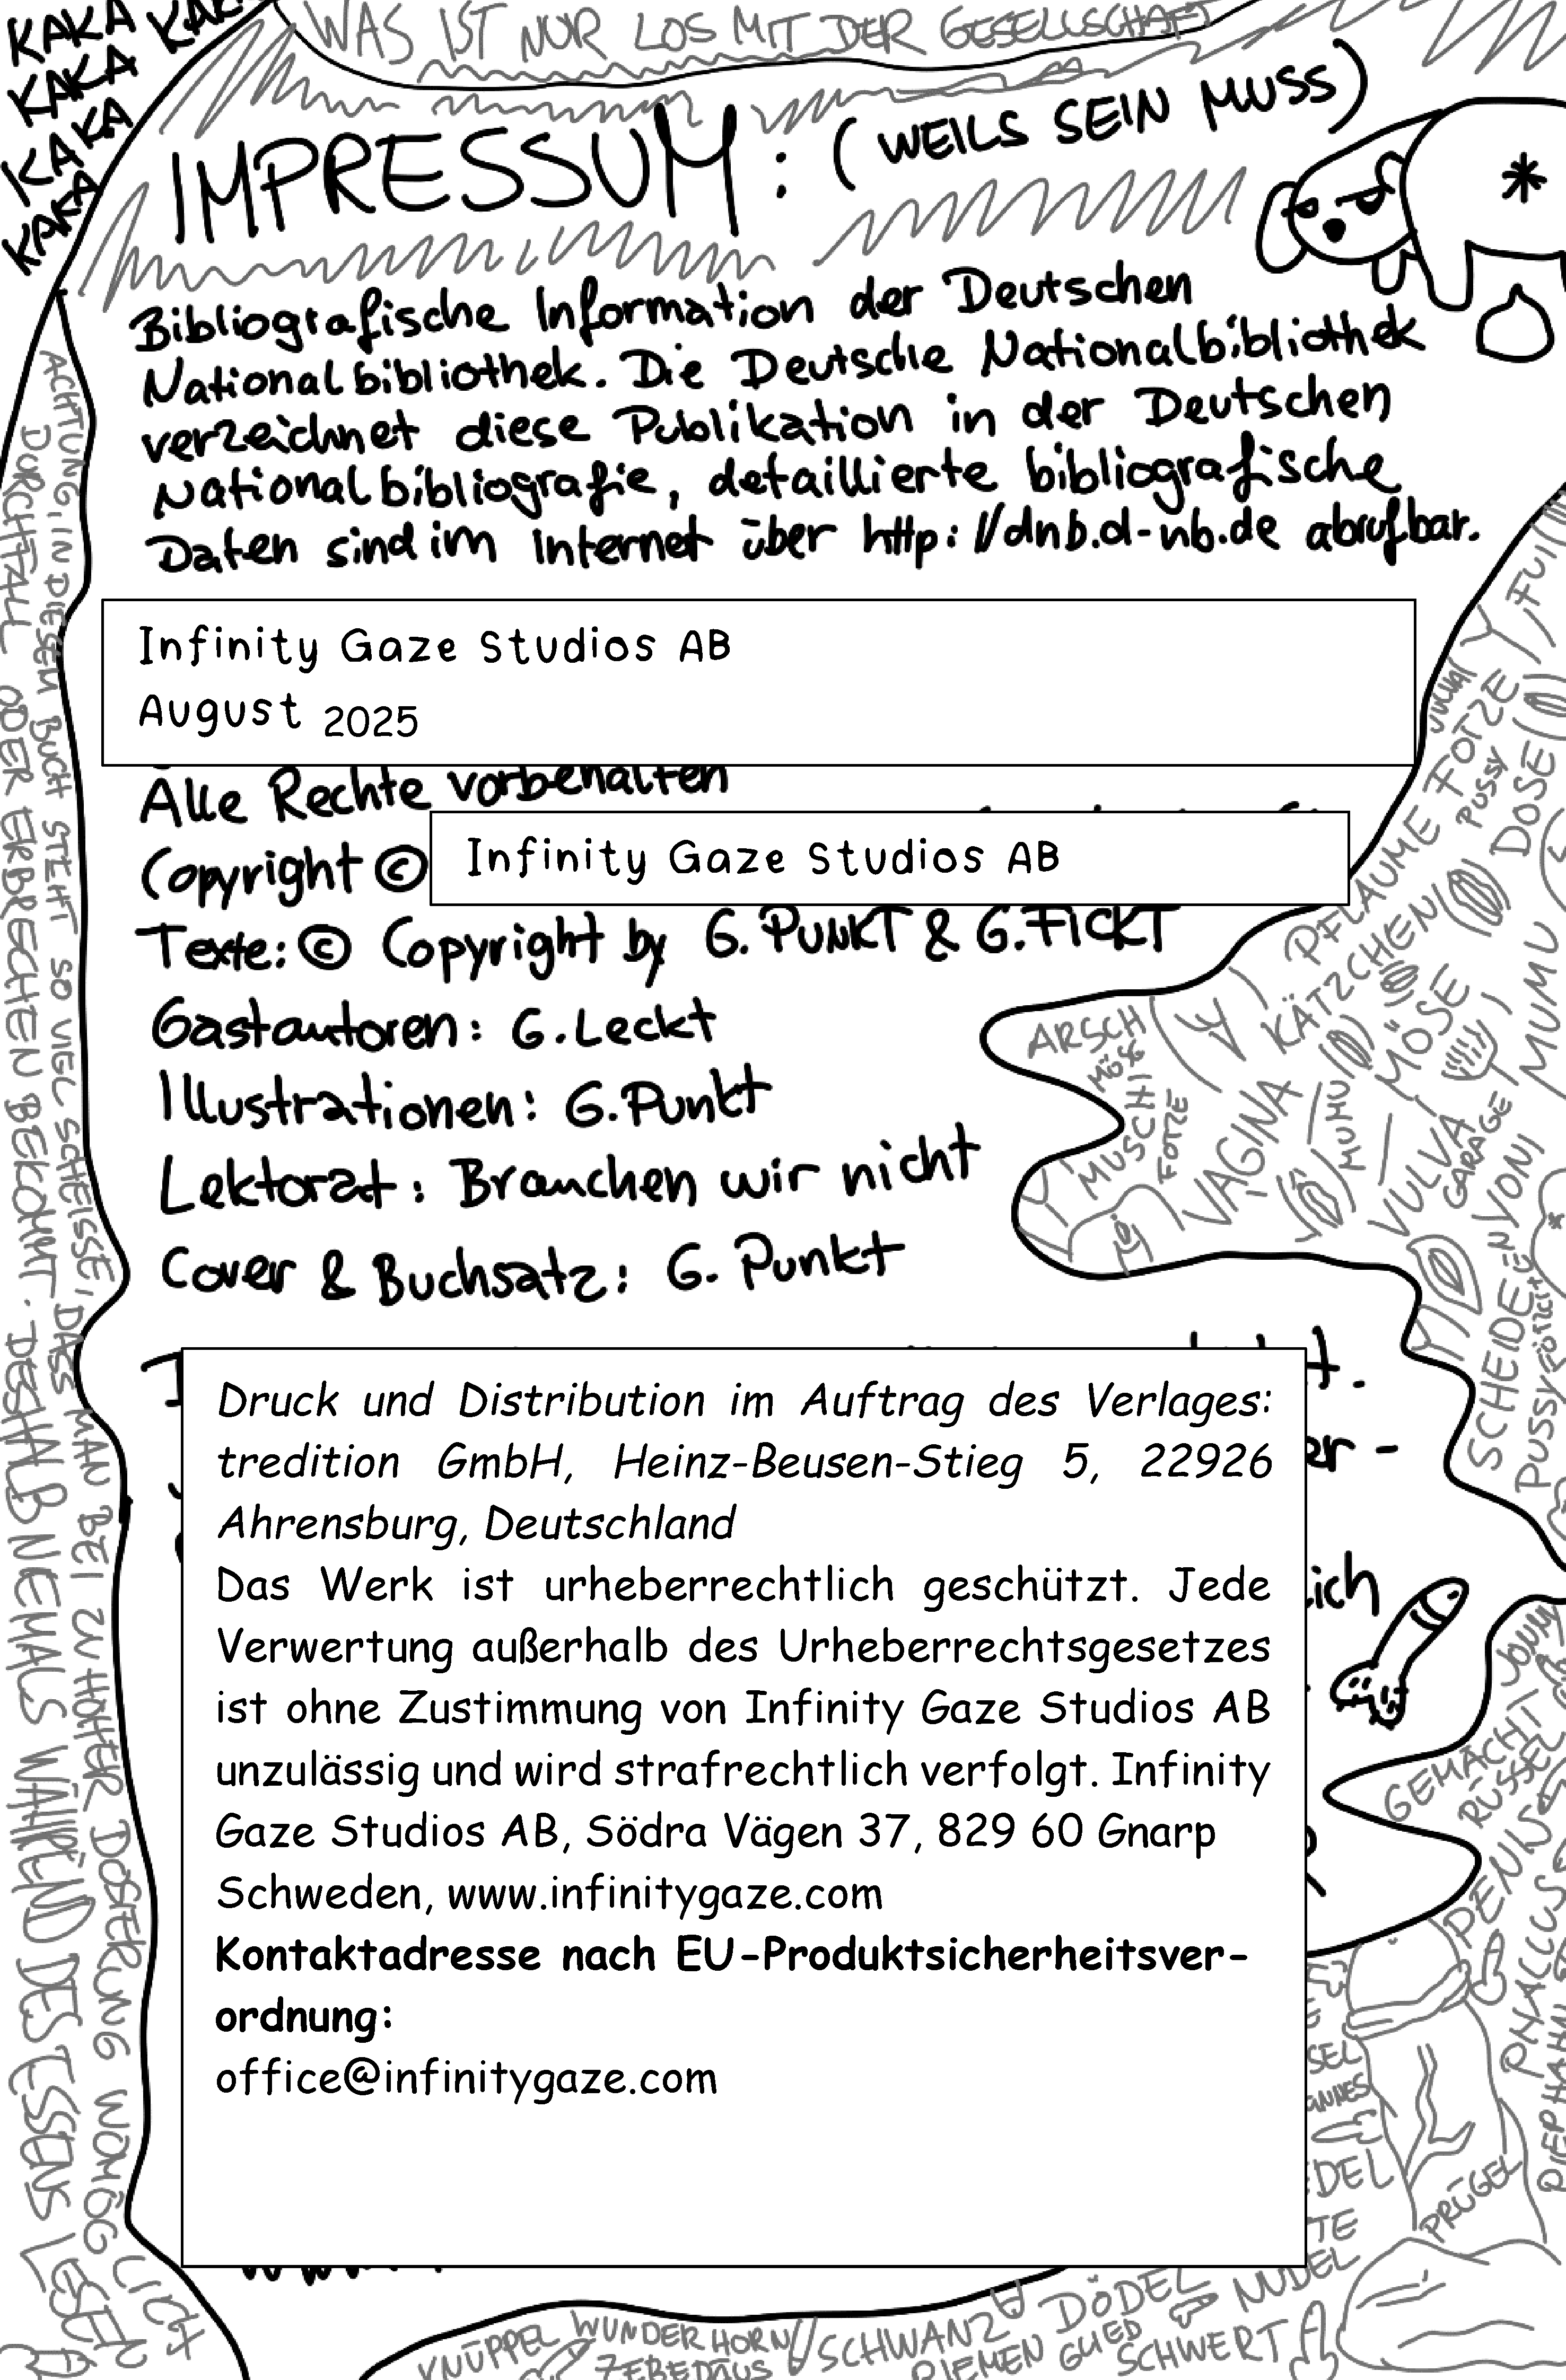 KAKA KAKA
KAKA
KAKA
KAKA
WAS IST NUR LOS MIT DER GESELLSCHAFT
IMPRESSUM: (WEILS SEIN MUSS)
Bibliografische Information der Deutschen
Nationalbibliothek. Die Deutsche Nationalbibliothek
verzeichnet diese Publikation in der Deutschen
Nationalbibliografie, detaillierte bibliografische
Daten sind im Internet über http://dnb.d-nb.de abrufbar.
Infinity Gaze Studios AB
August 2025
Alle Rechte vorbehalten
Copyright © Infinity Gaze Studios AB
Texte: © Copyright by G. PUNKT & G. FICKT
Gastautoren: G. Leckt
Illustrationen: G. Punkt
Lektorat: Brauchen wir nicht
Cover & Buchsatz: G. Punkt
Druck und Distribution im Auftrag des Verlages:
tredition GmbH, Heinz-Beusen-Stieg 5, 22926
Ahrensburg, Deutschland
Das Werk ist urheberrechtlich geschützt. Jede
Verwertung außerhalb des Urheberrechtsgesetzes
ist ohne Zustimmung von Infinity Gaze Studios AB
unzulässig und wird strafrechtlich verfolgt. Infinity
Gaze Studios AB, Södra Vägen 37, 829 60 Gnarp
Schweden, www.infinitygaze.com
Kontaktadresse nach EU-Produktsicherheitsver-
ordnung:
office@infinitygaze.com
ACHTUNG, IN DIESEM BUCH STEHT SO VIEL SCHEISSE, DASS MAN BEI ZU HOHER DOSIERUNG WOMÖGLICH
DURCHFALL ODER ERBRECHEN BEKOMMT. DESHALB NIEMALS WÄHREND DES ESSENS LESEN
PUSSY
FOTZE
DOSE
PFLAUME
KÄTZCHEN
MÖSE
MUMU
ARSCH
MÖSE
MUSCHI
FOTZE
VAGINA
MUMU
VULVA
GARAGE
YONI
SCHEIDE
GEMÄCHT
RÜSSEL
PENIS
PHALLUS
PRÜGEL
NUDEL
DÖDEL
SCHWANZ
RIEMEN GLIED
SCHWERT
KNÜPPEL
WUNDERHORN
ZEBEDÄUS